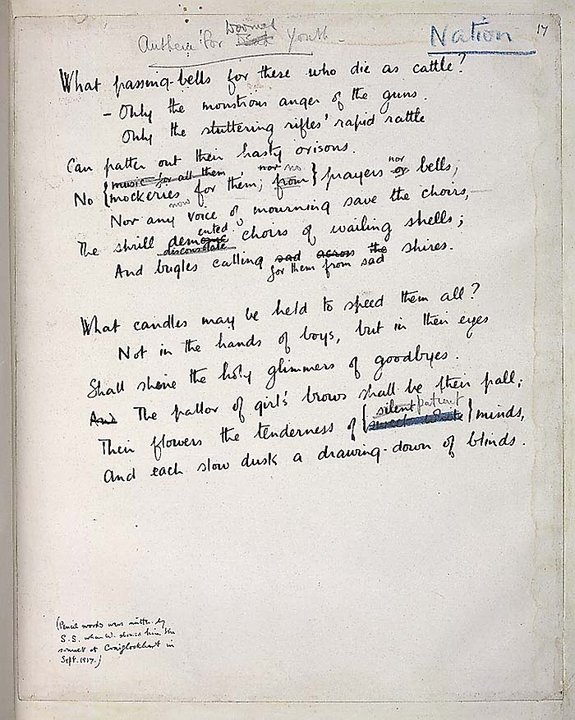 Nation
17
Anthem for Dead Doomed Youth
What passing-bells for these who die as cattle?
– Only the monstrous anger of the guns.
Only the stuttering rifles' rapid rattle
Can patter out their hasty orisons.
music for all them nor no nor
No { mockeries for them; from } prayers or bells,
now
Nor any voice of mourning save the choirs,—
ented
The shrill demonic choirs of wailing shells;
disconsolate
And bugles calling sad across the shires.
for them from sad
What candles may be held to speed them all?
Not in the hands of boys, but in their eyes
Shall shine the holy glimmers of goodbyes.
And The pallor of girls' brows shall be their pall;
silent patient
Their flowers the tenderness of { sweet white } minds,
And each slow dusk a drawing-down of blinds.
(Pencil words were written by
S.S. when W. showed him the
sonnet at Craiglockhart in
Sept. 1917.)